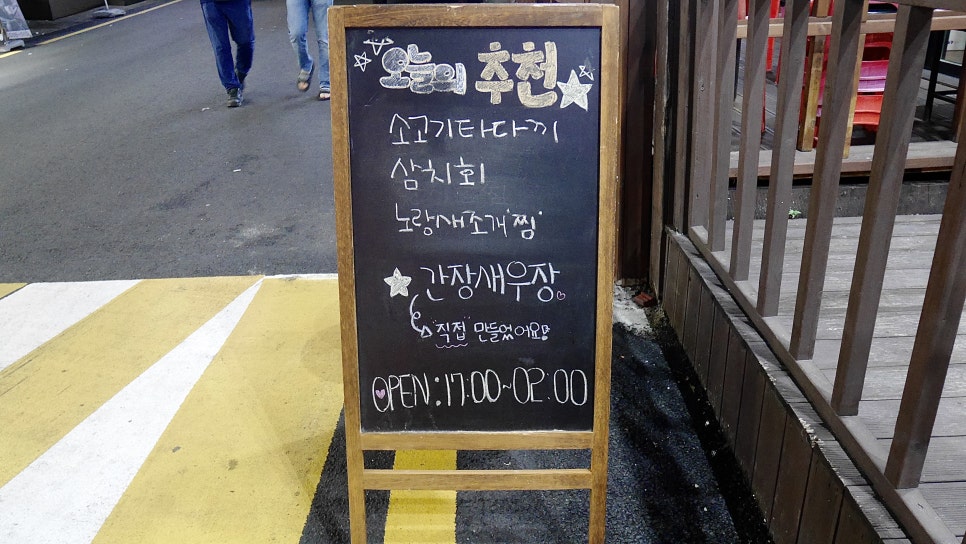 오늘의 추천
소고기타다끼
삼치회
노랑새조개"찜"
간장새우장
"직접" 만들었어요!
OPEN:17:00~02:00